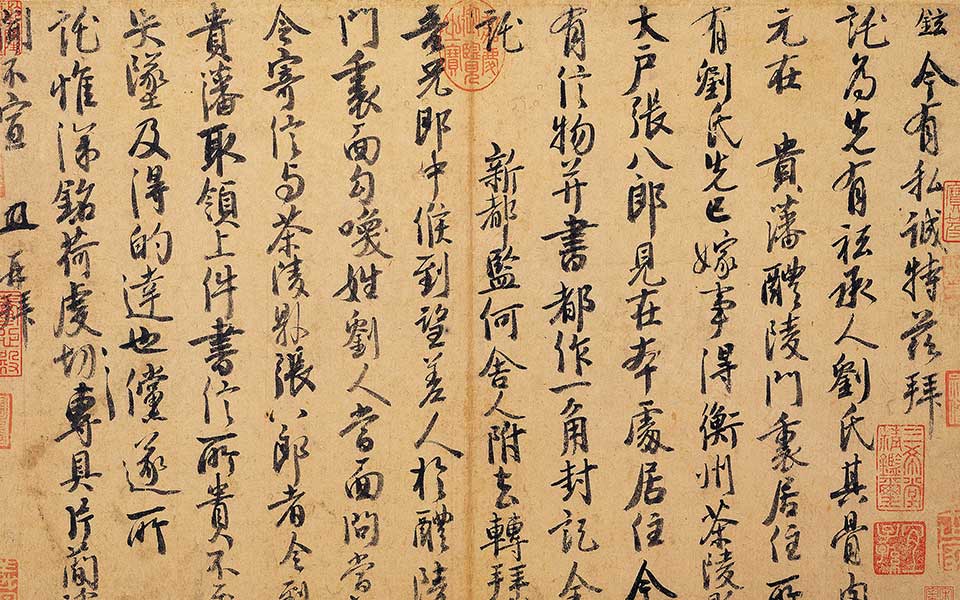 鉉今有私誠特茲拜
託為先有祗承人劉氏其骨肉
元在 貴藩醴陵門裏居住所
有劉氏先已嫁事得衡州茶陵縣
大戶張八郎見在本處居住今
有信物并書都作一角封記全
託 新都監何舍人附去轉拜
吾兄郎中候到望差人於醴陵
門裏面勾喚姓劉人當面問當
令寄信与茶陵縣張八郎者令到
貴藩取領上件書信所貴不
失墜及得的達也儻遂所
託惟深銘荷虔切專具片簡
聞不宣 再拜